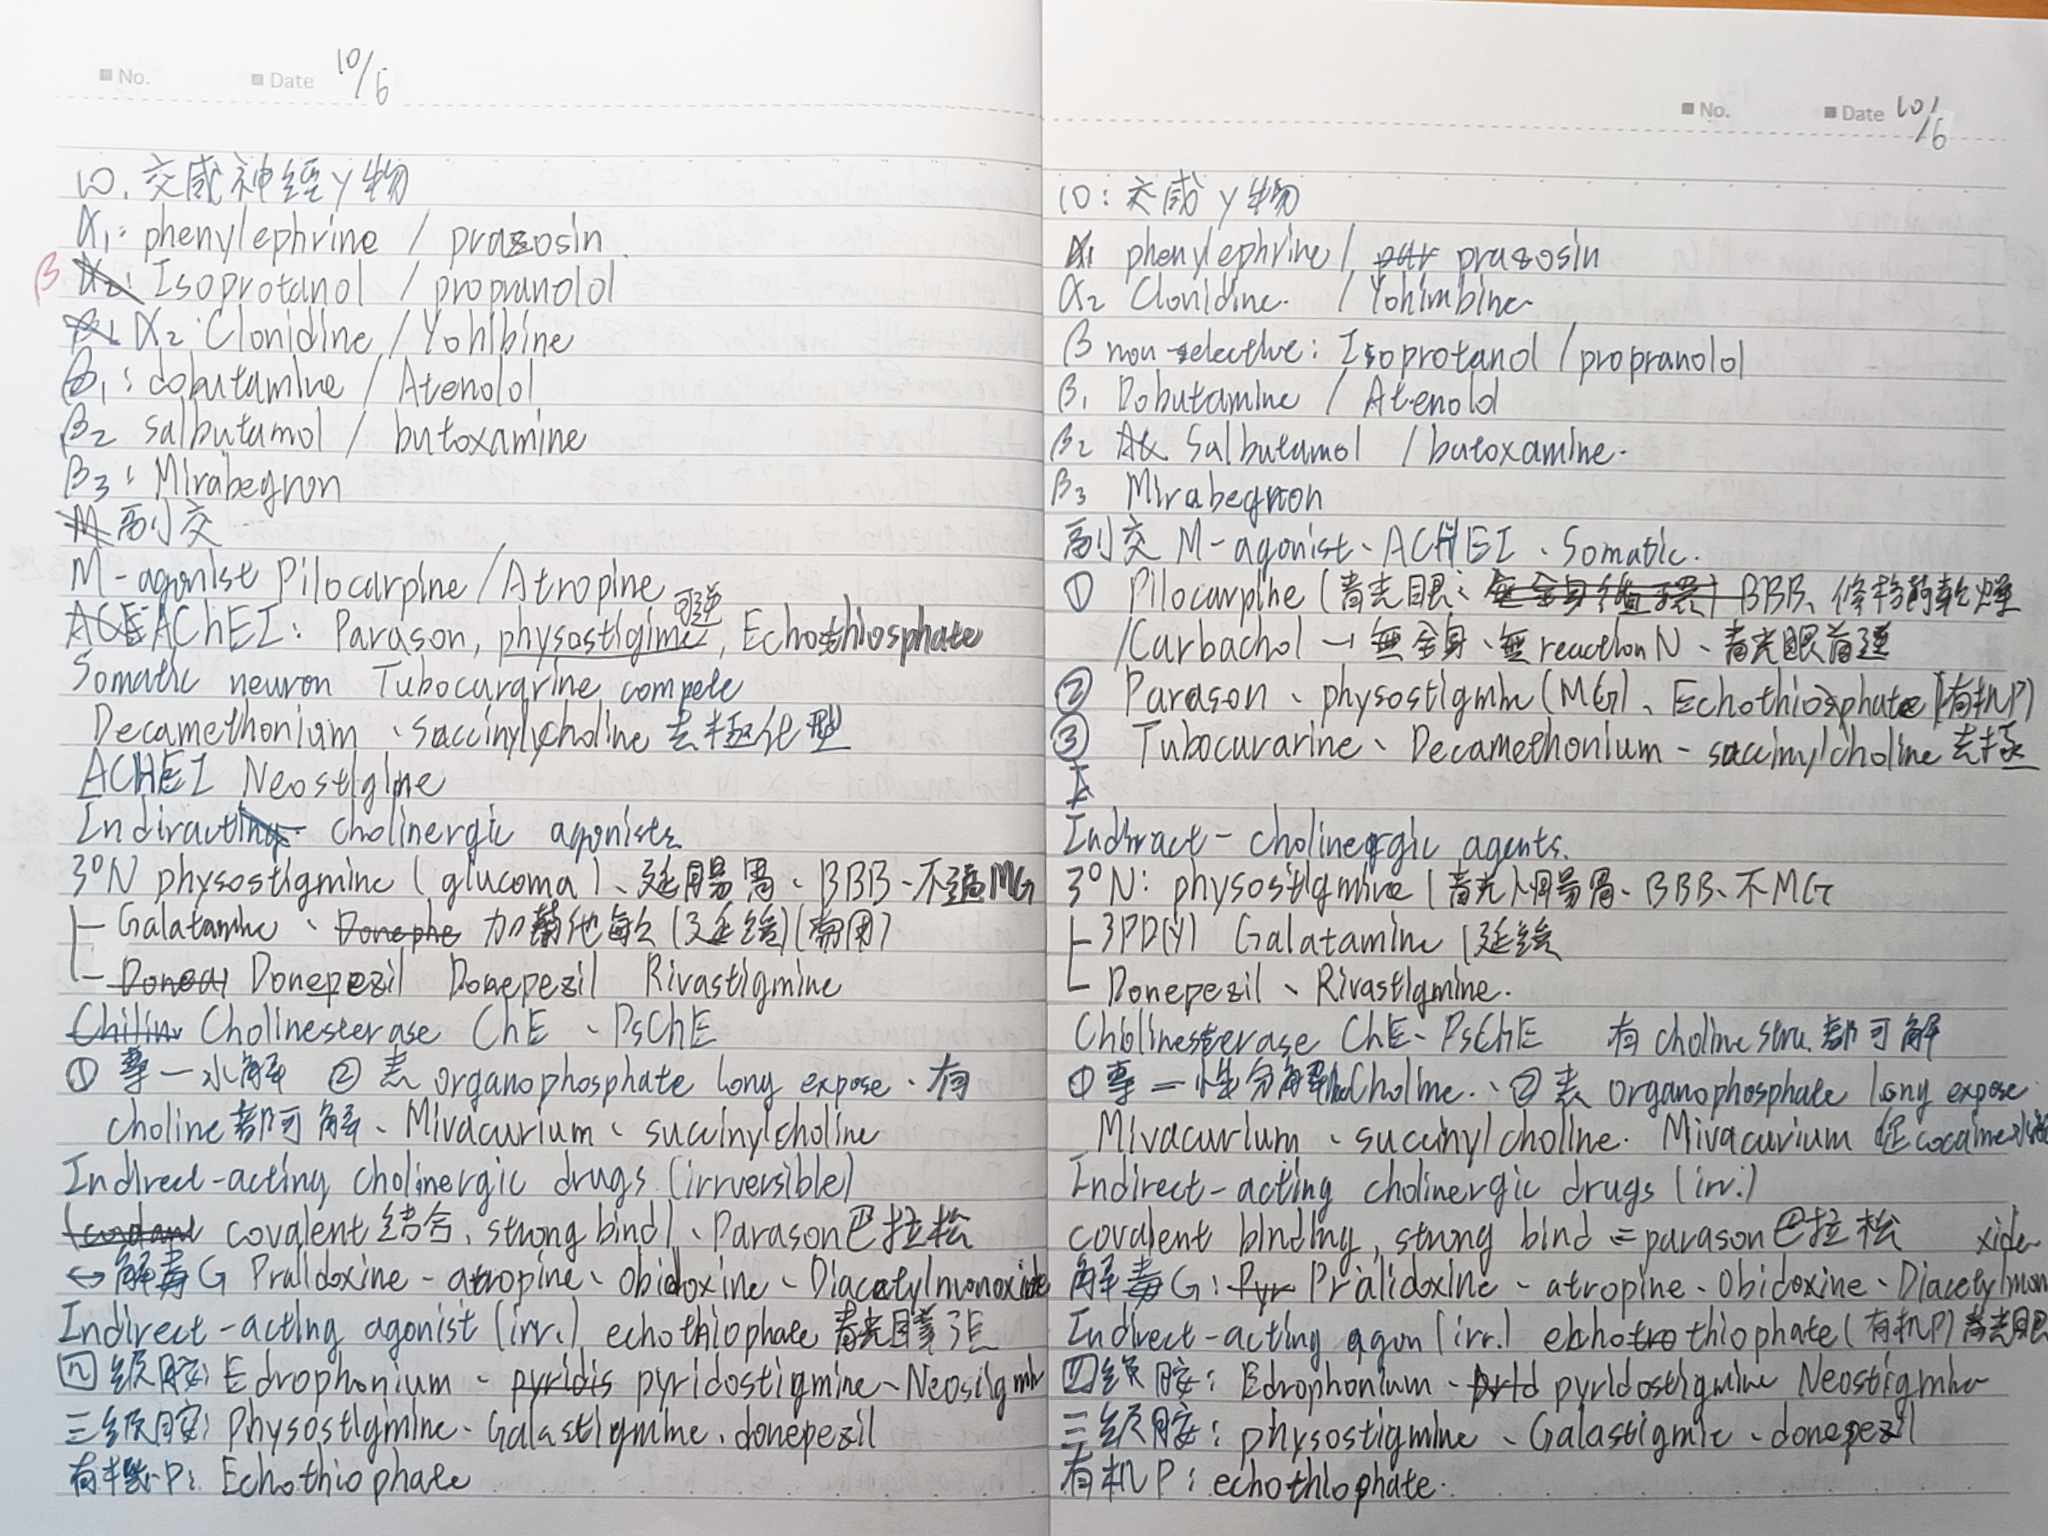 No. Date 10/6
10. 交感神經y物
α1: phenylephrine / prazosin
β Isoprotanol / propranolol
α2: Clonidine / Yohibine
β1: dobutamine / Atenolol
β2 salbutamol / butoxamine
β3: Mirabegnon
副交
M-agonist Pilocarpine/Atropine
AChEI: Parason, physostigime 可逆, Echothiosphate
Somatic neuron Tubocurarine compete
Decamethonium、succinylycholine 去極化型
ACHEI Neostigine
Indiract cholinergic agonists.
3°N physostigmine (glucoma)、延腸胃、BBB、不適MG
Galatamine、加蘭他敏 (延緩)
Donepezil Donepezil Rivastigmine
Cholinesterase ChE、PsChE
① 專一水解 ② 表 organophosphate long expose. 有
choline都可解、Mivacurium、succinylcholine
Indirect-acting cholinergic drugs (irrversible)
covalent 結合, strong bind)、Parason 巴拉松
↔ 解毒G Pralidoxine - atropine、Obidoxine、Diacetylmonoxide
Indirect-acting agonist (irr.) echothiophate 青光
四級胺: Edrophonium - pyridostigmine、Neosigmin
三級胺: Physostigmine、Galastigmine、donepezil
有機P: Echothiophate
No. Date 10/6
10: 交感y物
α1 phenylephrine / prazosin
α2 Clonidine / Yohimbine
β non-selective: Isoprotanol / propranolol
β1 Dobutamine / Atenold
β2 Salbutamol / butoxamine.
β3 Mirabegnon
副交 M-agonist、ACHEI、Somatic.
① Pilocarpine (青光眼; BBB、修格的乾燥
/Carbachol → 無全身、無 reaction N、青光眼首選
② Parason、physostigmine (MG)、Echothiosphate (有机P)
③ Tubocurarine、Decamethonium - succinylcholine 去極
Indirect-cholinergic agents.
3°N: physostigmine (青光 腸胃、BBB、不MG
Galatamine (延緩
Donepezil、Rivastigmine.
Cholinesterase ChE、PsChE 有 choline stru. 都可解
① 專一性分解 Choline.、② 表 organophosphate long expose
Mivacurium、succinylcholine. Mivacurium 促cocaine水解
Indirect-acting cholinergic drugs (irr.)
covalent binding, strong bind = parason 巴拉松 xide
解毒G: Prialidoxine - atropine、Obidoxine、Diacetylmon
Indirect-acting agon (irr.) echothiophate (有机P) 青光眼
四級胺: Edrophonium - pyridostigmine Neostigmine
三級胺: physostigmine、Galastigmie、donepezil
有机P: echothiophate.